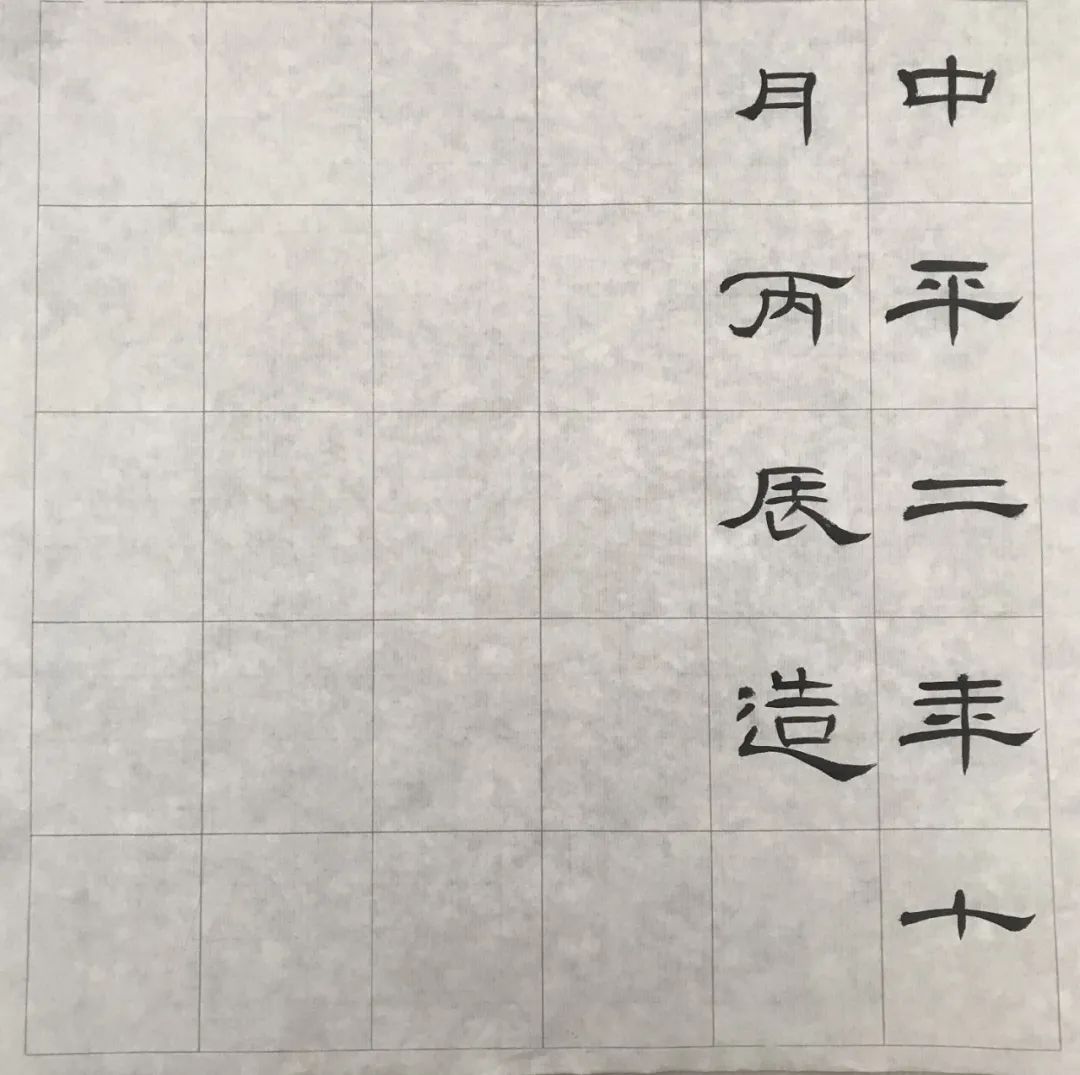 中平二年十
月丙辰造